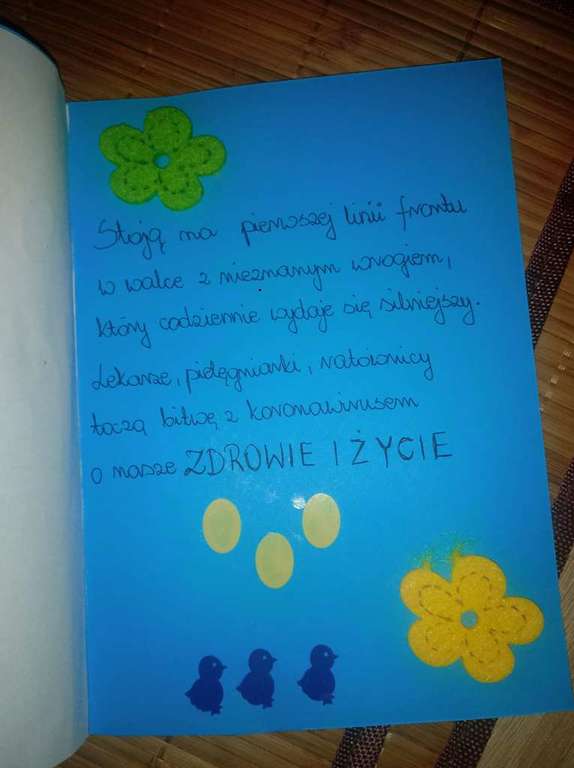 Stoją na pierwszej linii frontu
w walce z nieznanym wrogiem,
który codziennie wydaje się silniejszy.
Lekarze, pielęgniarki, ratownicy
toczą bitwę z koronawirusem
o nasze ZDROWIE I ŻYCIE